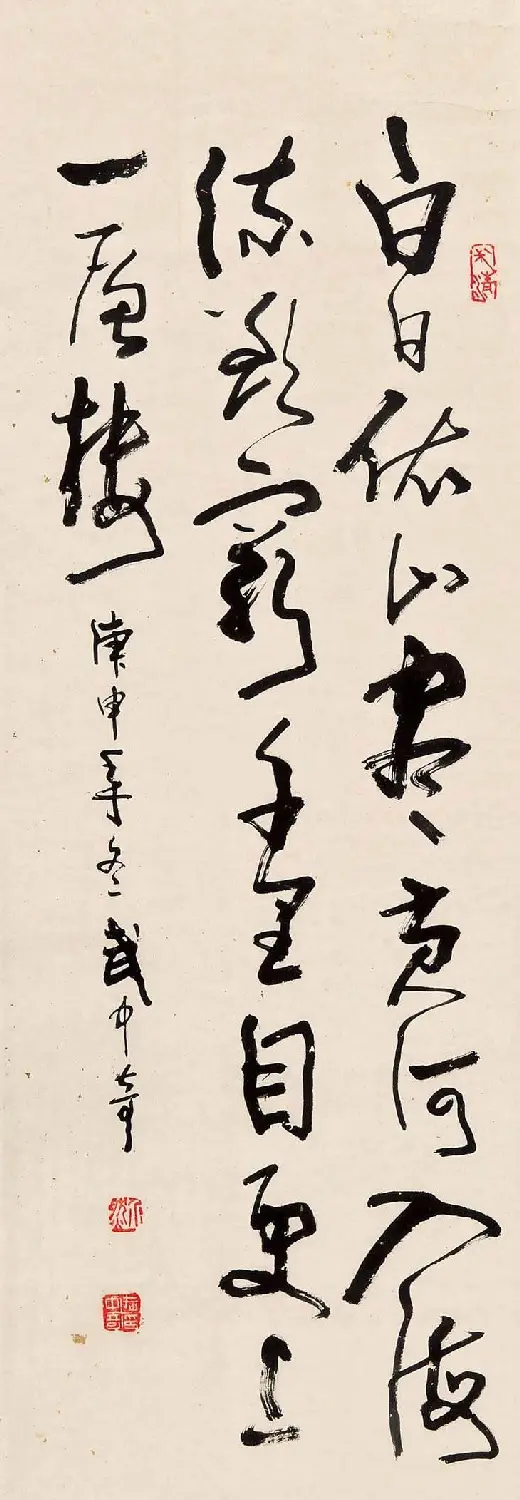 白日依山盡黄河入海
流欲窮千里目更上
一層樓
庚申年冬武中奇